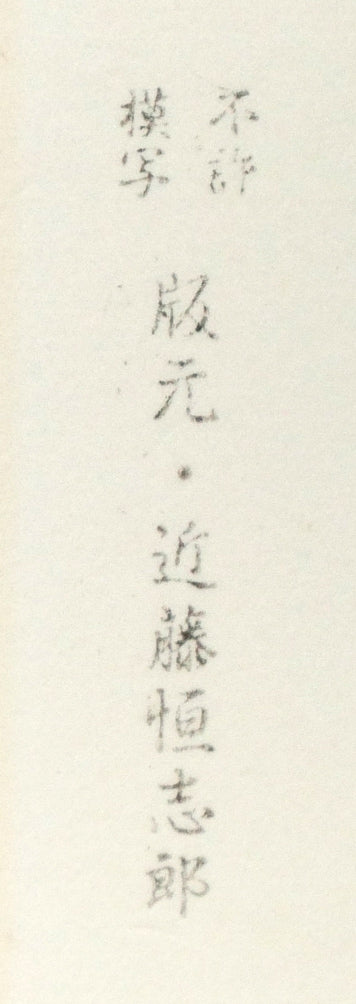 不許
模写
版元・近藤恒志郎